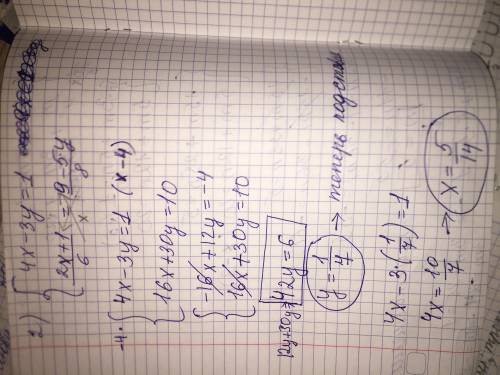 2) { 4x-3y=1
{ (2x+1)/6 = (9-5y)/8
-4· { 4x-3y=1 (x-4)
{ 16x+30y=10
{ -16x+12y=-4
{ 16x+30y=10
12y+30y= 42y=6
y=1/7 → теперь подставл
4x-3·(1/7)=1
4x=10/7 → x=5/14